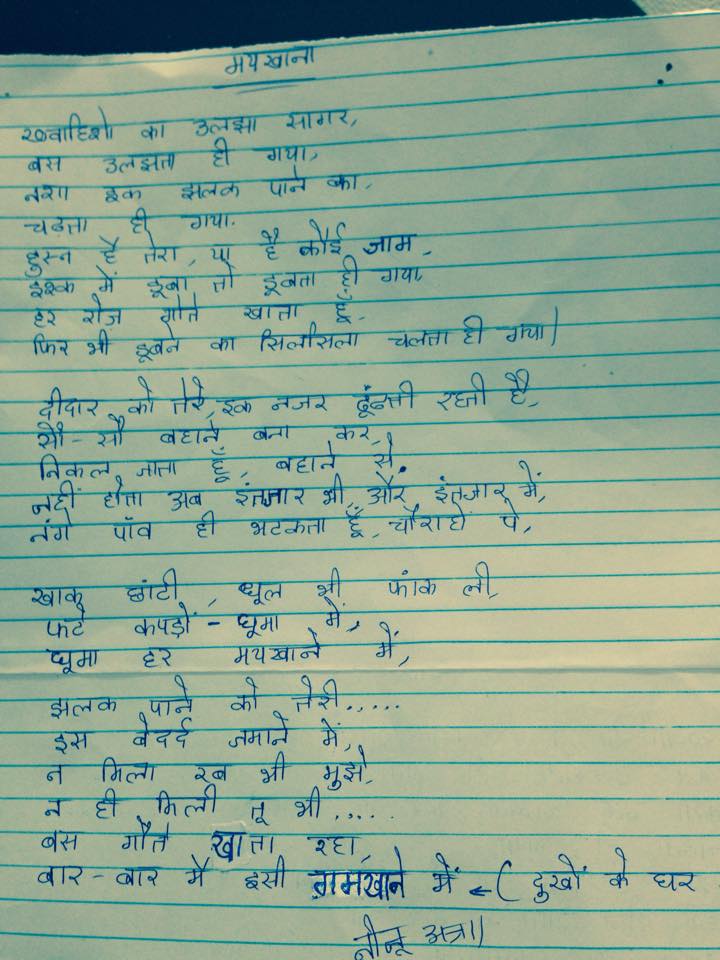 मयखाना
ख्वाहिशो का उलझा सागर,
बस उलझता ही गया,
नशा इक झलक पाने का,
चढता ही गया.
हुस्न है तेरा, या है कोई जाम,
इश्क में डूबा तो डूबता ही गया
हर रोज गोते खाता हूँ,
फिर भी डूबने का सिलसिला चलता ही गया।
दीदार को तेरे, इक नजर ढूंढती रहती है,
सौ-सौ बहाने बना कर,
निकल जाता हूँ, बहाने से.
नहीं होता अब इंतजार भी, और इंतजार में,
नंगे पाँव ही भटकता हूँ, चौराहो पे,
खाक छांटी, धूल भी फांक ली,
फटे कपड़ों - घूमा में,
घूमा हर मयखाने में,
झलक पाने को तेरी.....
इस बेदर्द जमाने में,
न मिला रब भी मुझे,
न ही मिली तू भी.....
बस गौते खाता रहा,
बार-बार मै इसी ग़मखाने में ← ( दुखों के घर